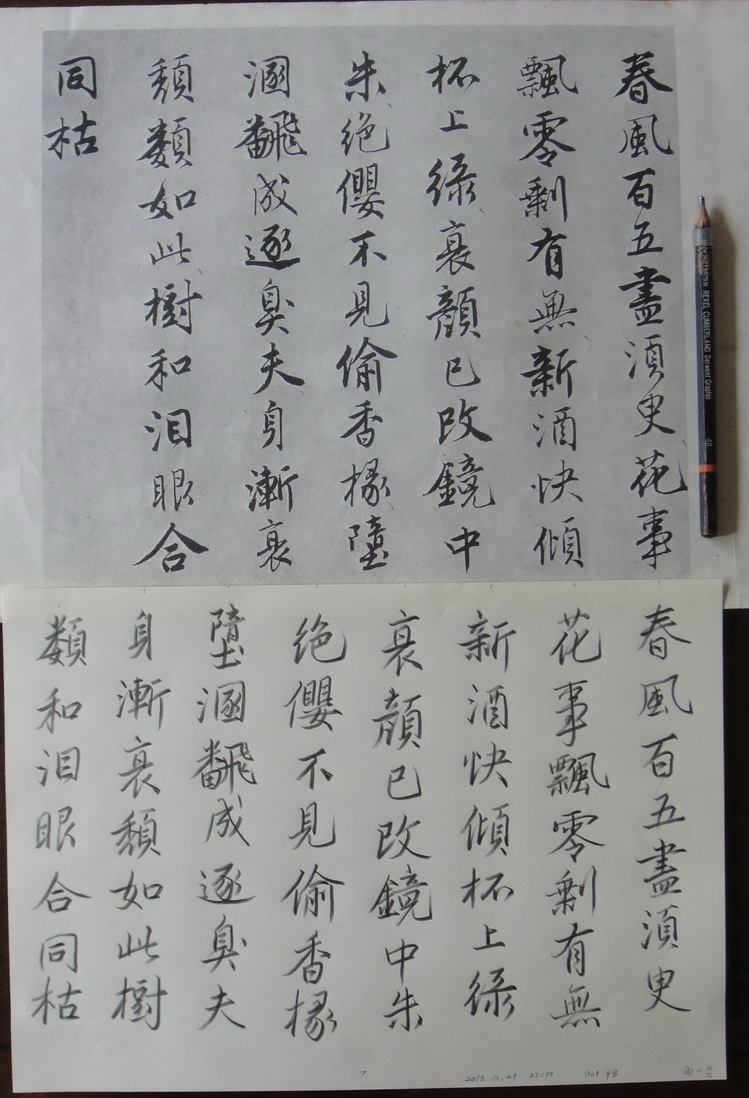 春風百五盡須臾花事
飄零剩有無新酒快傾
杯上綠衰顏已改鏡中
朱絕纓不見偷香椽墮
溷飜成逐臭夫身漸衰
頹類如此樹和泪眼合
同枯
REXEL CUMBERLAND Derwent Graphic
春風百五盡須臾
花事飄零剩有無
新酒快傾杯上綠
衰顏已改鏡中朱
絕纓不見偷香椽
墮溷飜成逐臭夫
身漸衰頹如此樹
類和泪眼合同枯
7